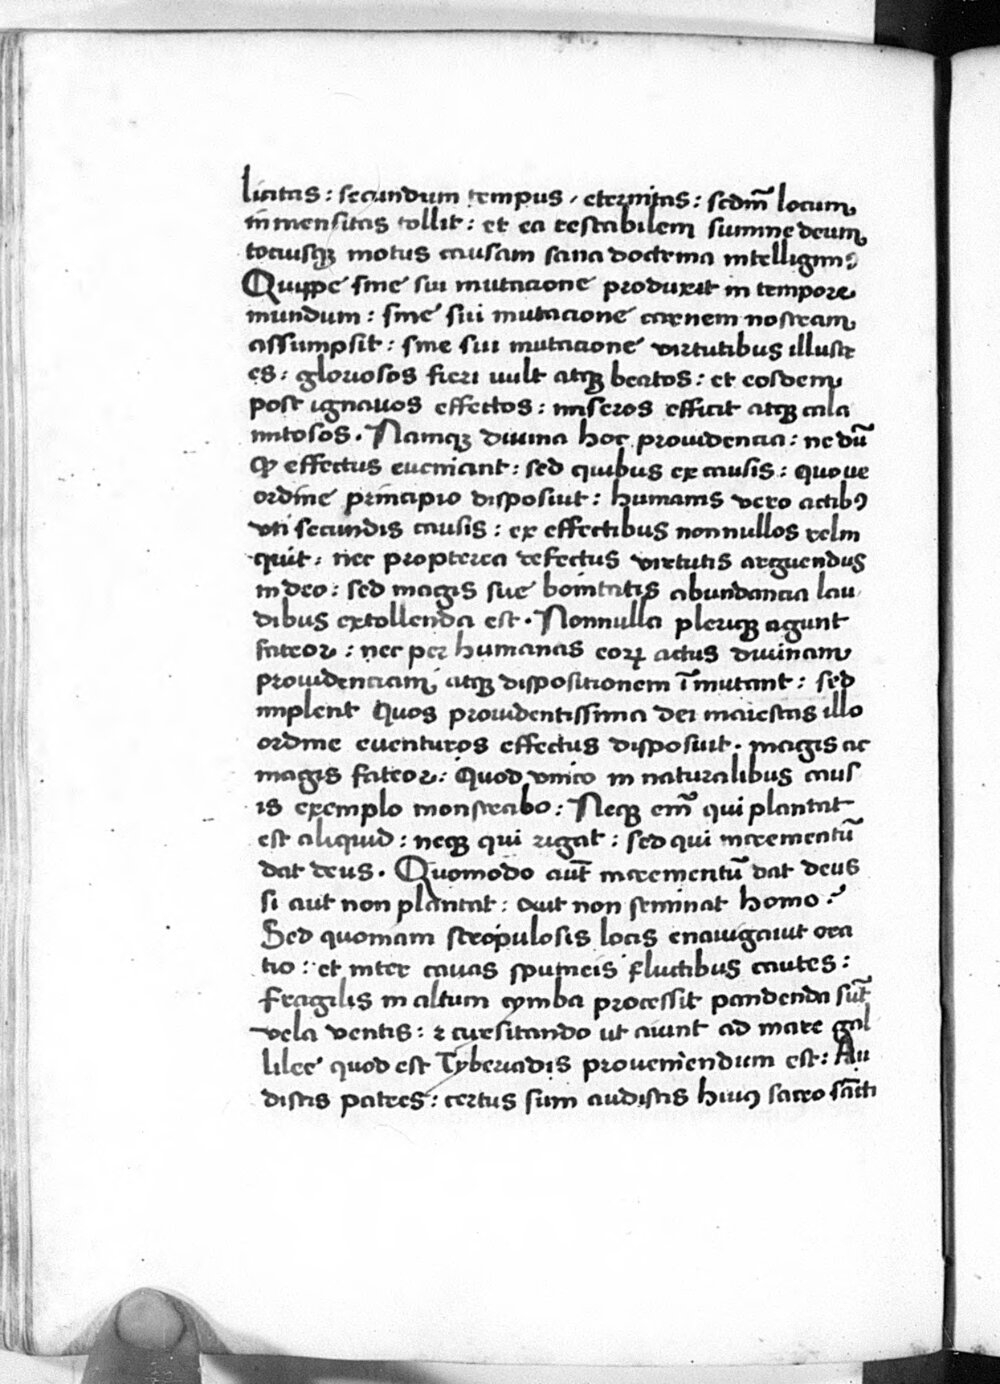 licitas : secundum tempus , eternitas : sedm̄ locum
inmensitas tollit : et ea testabilem summe deum
tociusqꝫ motus causam sana doctrina intelligimꝰ
Quippe sine sui mutacione produxit in tempore
mundum : sine sui mutacione carnem nostram
assumpsit : sine sui mutacione virtutibus illustr
es : gloriosos fieri uult atqꝫ beatos : et eosdem
post ignauos effectos : miseros efficit atqꝫ cala
mitosos . Namqꝫ diuina hoc prouidencia : ne dū
ꝙ effectus eueniant : sed quibus ex causis : quoue
ordine principio disposiut : humanis vero actibꝰ
vti secundis causis : ex effectibus nonnullos relin
quit : nec propterea defectus virtutis arguendus
in deo : sed magis sue bonitatis abundancia lau
dibus extollenda est . Nonnulla pleriqꝫ agunt
fateor : nec per humanas eoꝝ actus diuinam
prouidenciam atqꝫ dispositionem īmutant : sed
implent Quos prouidentissima dei maiestas illo
ordine euenturos effectus disposuit . magis ac
magis fateor : Quod vnico in naturalibus caus
is exemplo monstrabo : Neqꝫ em̄ qui plantat
est aliquid : neqꝫ qui rigat : sed qui incrementū
dat deus . Quomodo aūt incrementū dat deus
si aut non plantat : aut non seminat homo :
Sed quoniam scropulosis locis enauigauit ora
tio : et inter cauas spumeis fluctibus cautes :
fragilis in altum cymba processit pandenda sūt
vela ventis : ⁊ cursitando ut aiunt ad mare gal
lilee quod est Tyberiadis proueniendum est : Au
distis patres : certus sum audistis huiꝰ sacro sācti